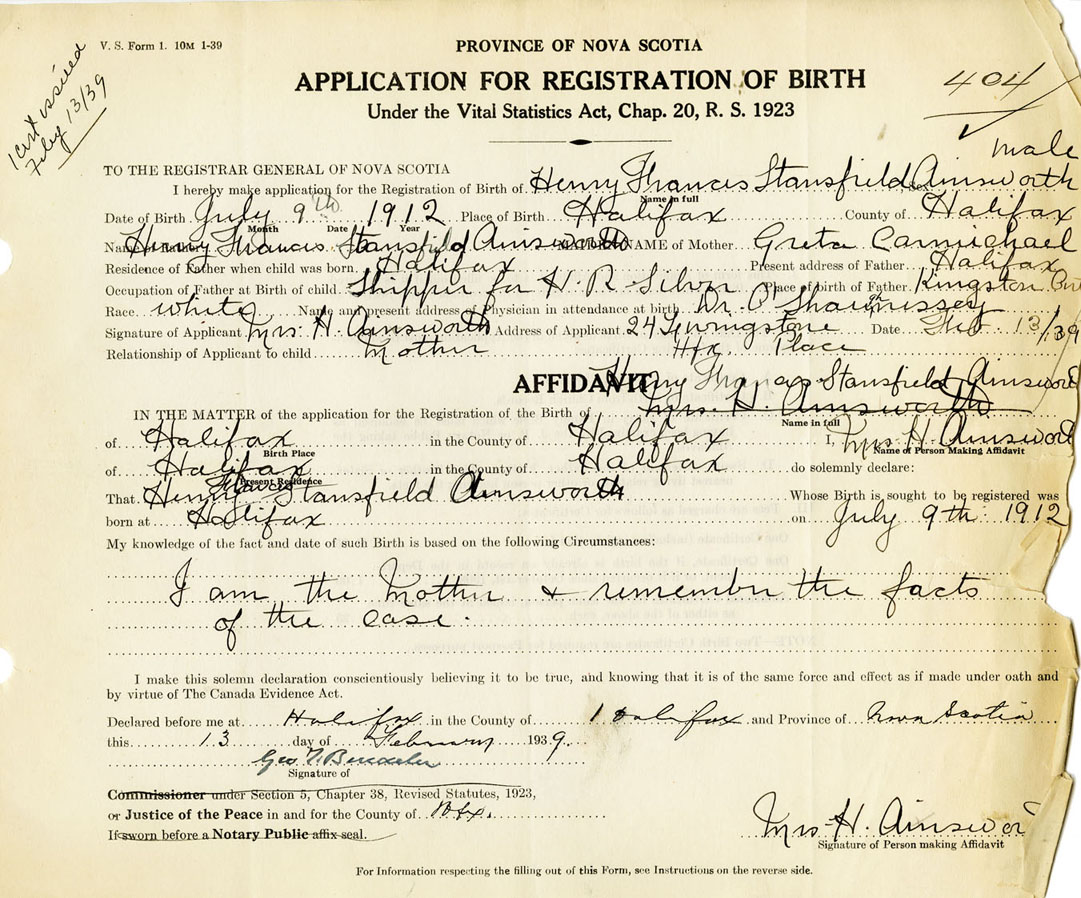 V. S. Form 1. 10M 1-39
1 cert issued
Feby 13/39
PROVINCE OF NOVA SCOTIA
APPLICATION FOR REGISTRATION OF BIRTH
Under the Vital Statistics Act, Chap. 20, R. S. 1923
404
male
TO THE REGISTRAR GENERAL OF NOVA SCOTIA
I hereby make application for the Registration of Birth of Henry Francis Stansfield Ainsworth Sex
Name in full
Date of Birth July 9th 1912 Place of Birth Halifax County of Halifax
Month Date Year
Name of Father Henry Francis Stansfield Ainsworth NAME of Mother Greta Carmichael
Residence of Father when child was born Halifax Present address of Father Halifax
Occupation of Father at Birth of child Shipper for H. R. Silver Place of birth of Father Kingston
Race white Name and present address of Physician in attendance at birth Dr. O'Shaughnessey
Signature of Applicant Mrs H. Ainsworth Address of Applicant 24 Livingstone Date Feb 13/39
Relationship of Applicant to child Mother Hfx. Place
AFFIDAVIT
Henry Francis Stansfield Ainsworth
IN THE MATTER of the application for the Registration of the Birth of Mrs. H. Ainsworth
Name in full
of Halifax in the County of Halifax I, Mrs H. Ainswort
Birth Place Name of Person Making Affidavit
of Halifax in the County of Halifax do solemnly declare:
Present Residence
That Henry Francis Stansfield Ainsworth Whose Birth is sought to be registered was
born at Halifax on July 9th 1912
My knowledge of the fact and date of such Birth is based on the following Circumstances:
I am the Mother & remember the facts
of the case.
I make this solemn declaration conscientiously believing it to be true, and knowing that it is of the same force and effect as if made under oath and
by virtue of The Canada Evidence Act.
Declared before me at Halifax in the County of Halifax and Province of Nova Scotia
this 13 day of February 1939
Geo
Signature of
Commissioner under Section 5, Chapter 38, Revised Statutes, 1923,
or Justice of the Peace in and for the County of Hfx.
If sworn before a Notary Public affix seal.
Mrs. H. Ainswor
Signature of Person making Affidavit
For Information respecting the filling out of this Form, see Instructions on the reverse side.